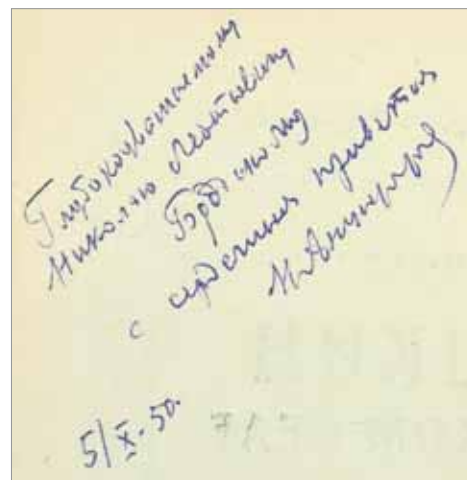 Глубокоуважаемому
Николаю Леонтьевичу
Бродскому
с сердечным приветом
Н Анциферов
5/X-50.